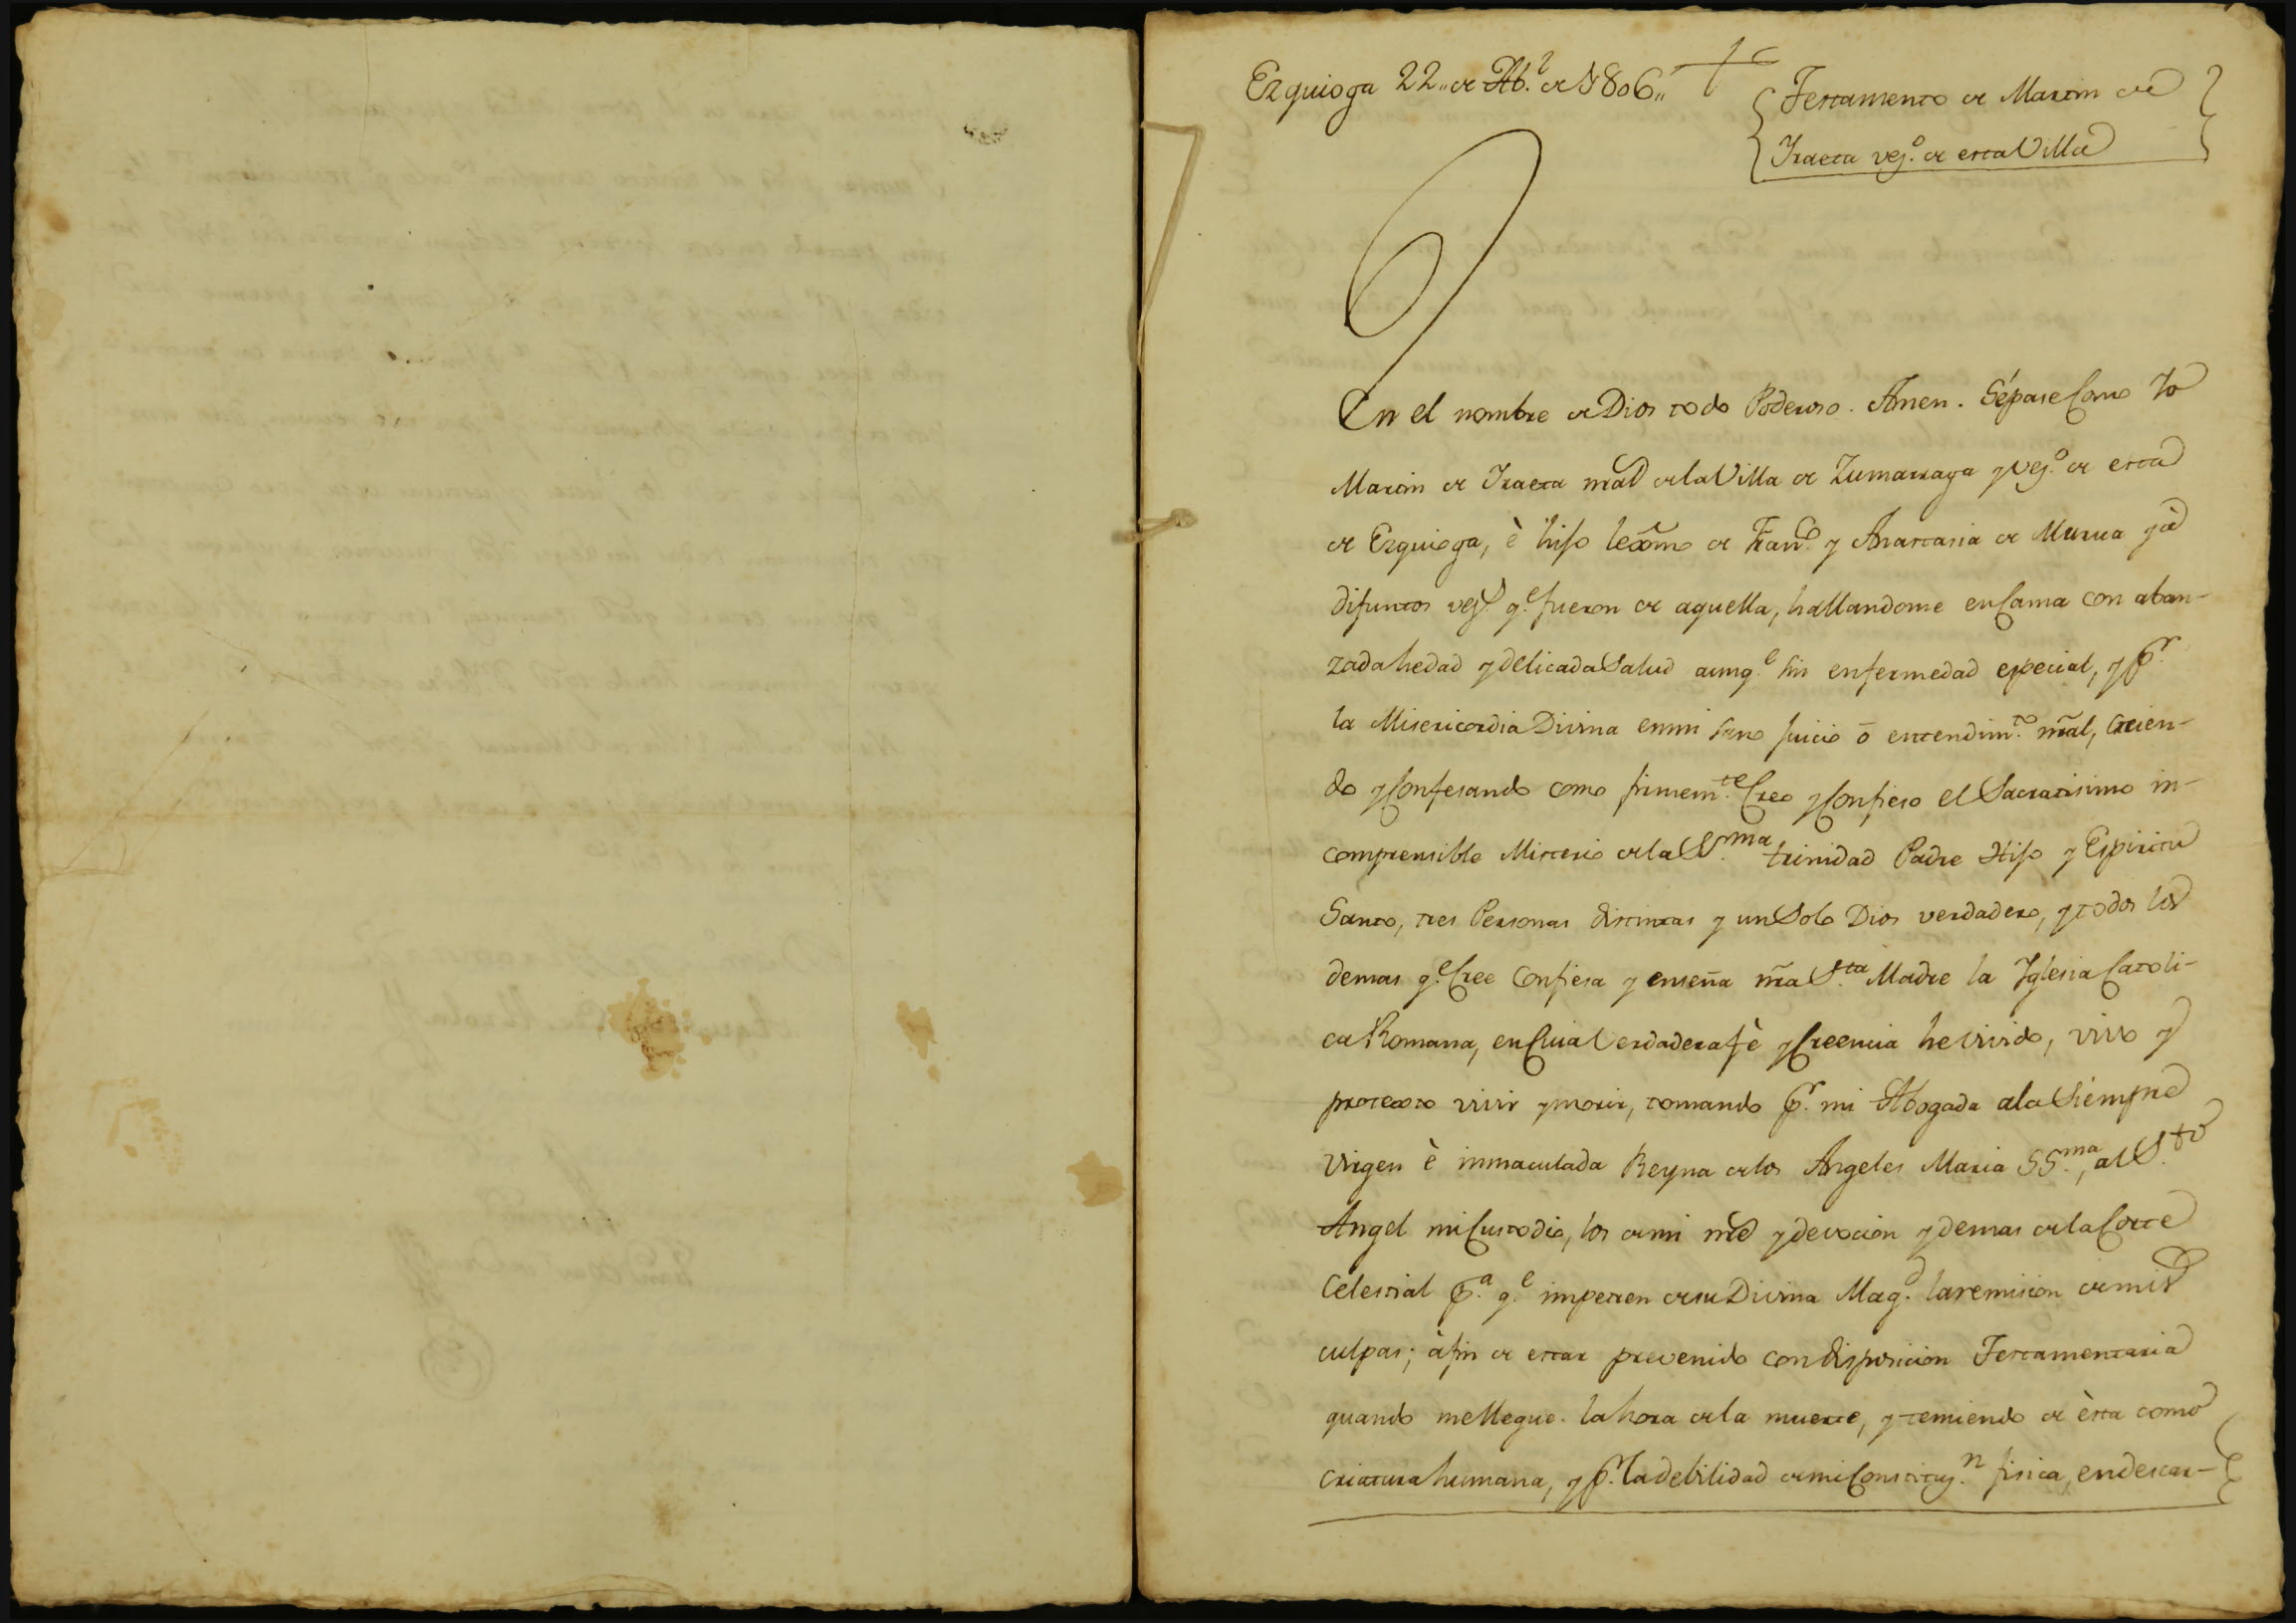 Ezquioga 22,, de Ab.l de 1806,,
Testamento de Martin de
Iraeta vez.o de esta Villa
En el nombre de Dios todo Poderoso. Amen. Sépase Como Yo
Martin de Iraeta nral de la Villa de Zumarraga y vez.o de esta
de Ezquioga, è hijo lexmo de Fran.co y Anastasia de Murua ya
difuntos vez.s q.e fueron de aquella, hallandome en Cama con aban-
zada hedad y delicada Salud aunq.e sin enfermedad especial, y p.r
la Misericordia Divina en mi sano juicio ō entendim.to nr̃al, creien-
do y Confesando como firmem.te Creo y Confieso el Sacratisimo in-
comprensible Misterio de la SS.ma trinidad Padre Hijo y Espiritu
Santo, tres Personas distintas y un Solo Dios verdadero, y todos los
demas q.e Cree Confiesa y enseña nr̃a S.ta Madre la Iglesia Catoli-
ca Romana, en Cuia Verdadera fè y Creencia he vivido, vivo y
protexto vivir y morir, tomando p.r mi Abogada a la Siempre
Virgen è inmaculada Reyna de los Angeles Maria SS.ma, al S.to
Angel mi Custodio, los de mi nre y devocion y demas de la Corte
Celestial p.a q.e impetren de su Divina Mag.d la remision de mis
culpas; à fin de estar prevenido con disposicion Testamentaria
quando me llegue la hora de la muerte, y temiendo de èsta como
criatura humana, y p.r la debilidad de mi Constituz.n fisica, en descar-